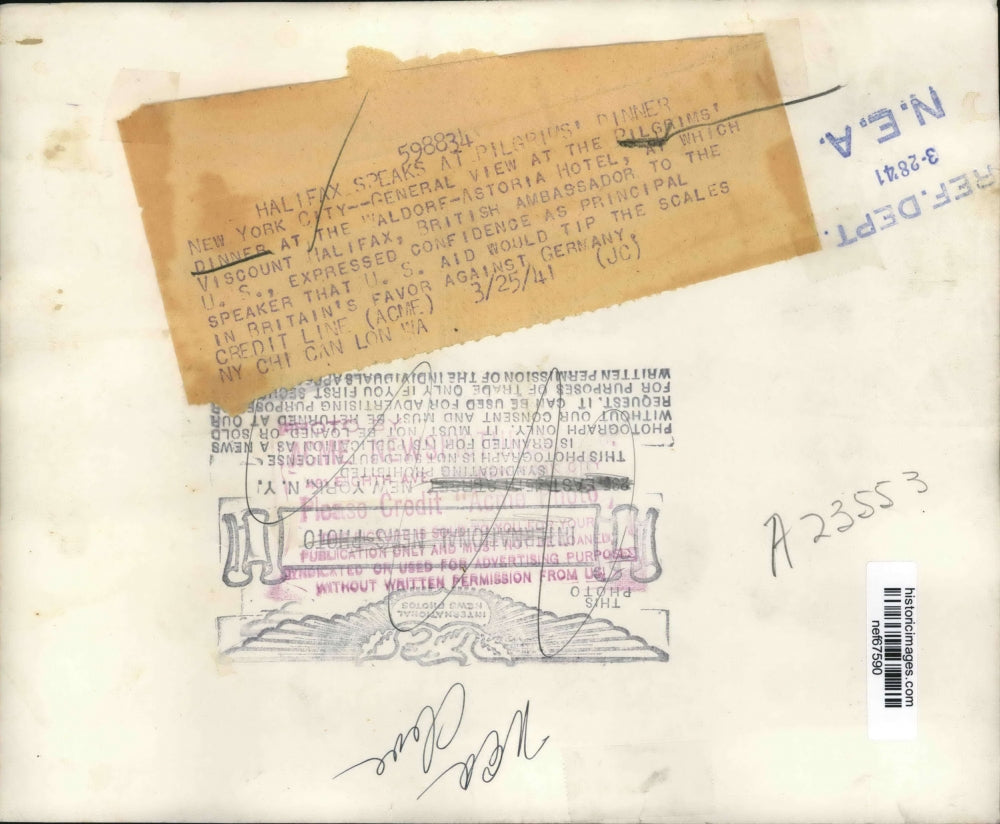 598834
HALIFAX SPEAKS AT PILGRIMS' DINNER
NEW YORK CITY--GENERAL VIEW AT THE PILGRIMS'
DINNER AT THE WALDORF-ASTORIA HOTEL, AT WHICH
VISCOUNT HALIFAX, BRITISH AMBASSADOR TO THE
U. S., EXPRESSED CONFIDENCE AS PRINCIPAL
SPEAKER THAT U. S. AID WOULD TIP THE SCALES
IN BRITAIN'S FAVOR AGAINST GERMANY.
CREDIT LINE (ACME) 3/25/41 (JC)
NY CHI CAN LON WA
N.E.A.
3-28 41
REF. DEPT.
THIS
PHOTO
INTERNATIONAL
NEWS PHOTOS
INTERNATIONAL
PHOTO
NEW YORK, N. Y.
SYNDICATING PROHIBITED
THIS PHOTOGRAPH IS NOT
IS GRANTED FOR ITS PUBLICATION AS A NEWS
PHOTOGRAPH ONLY. IT MUST NOT BE LOANED OR SOLD
WITHOUT OUR CONSENT AND MUST BE RETURNED AT OUR
REQUEST. IT CAN BE USED FOR ADVERTISING PURPOSES
FOR PURPOSES OF TRADE ONLY IF YOU FIRST
WRITTEN PERMISSION OF THE INDIVIDUALS
EIGHTH AVE
Please Credit "Acme Photo"
YOUR
PUBLICATION ONLY AND MUST NOT
SYNDICATED OR USED FOR ADVERTISING PURPOSES
WITHOUT WRITTEN PERMISSION FROM US!
A 23553
historicimages.com
nef67590